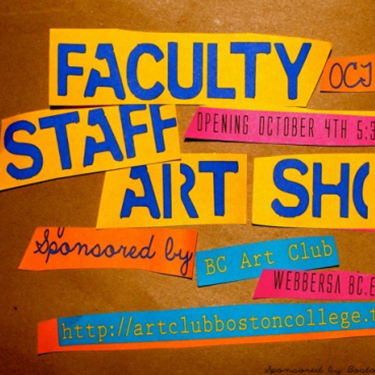 FACULTY OCT
STAFF OPENING OCTOBER 4TH 5:3
ART SHO
Sponsored by BC Art Club
WEBBERSA BC.E
http://artclubbostoncollege.t
Sponsored by Bosto